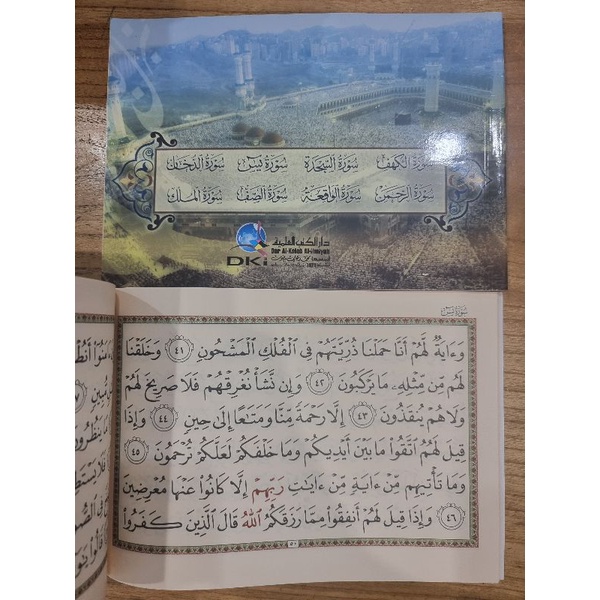 سورة الكهف سورة السجدة سورة يس سورة الدخان
سورة الرحمن سورة الواقعة سورة الصف سورة الملك
دار الكتب العلمية
Dar Al-Kotob Al-ilmiyah
DKi
سورة يس
وَءَايَةٌ لَّهُمْ أَنَّا حَمَلْنَا ذُرِّيَّتَهُمْ فِي الْفُلْكِ الْمَشْحُونِ ﴿٤١﴾ وَخَلَقْنَا
لَهُم مِّن مِّثْلِهِ مَا يَرْكَبُونَ ﴿٤٢﴾ وَإِن نَّشَأْ نُغْرِقْهُمْ فَلَا صَرِيخَ لَهُمْ
وَلَا هُمْ يُنقَذُونَ ﴿٤٣﴾ إِلَّا رَحْمَةً مِّنَّا وَمَتَاعًا إِلَىٰ حِينٍ ﴿٤٤﴾ وَإِذَا
قِيلَ لَهُمُ اتَّقُوا مَا بَيْنَ أَيْدِيكُمْ وَمَا خَلْفَكُمْ لَعَلَّكُمْ تُرْحَمُونَ ﴿٤٥﴾
وَمَا تَأْتِيهِم مِّنْ ءَايَةٍ مِّنْ ءَايَاتِ رَبِّهِمْ إِلَّا كَانُوا عَنْهَا مُعْرِضِينَ
﴿٤٦﴾ وَإِذَا قِيلَ لَهُمْ أَنفِقُوا مِمَّا رَزَقَكُمُ اللَّهُ قَالَ الَّذِينَ كَفَرُوا